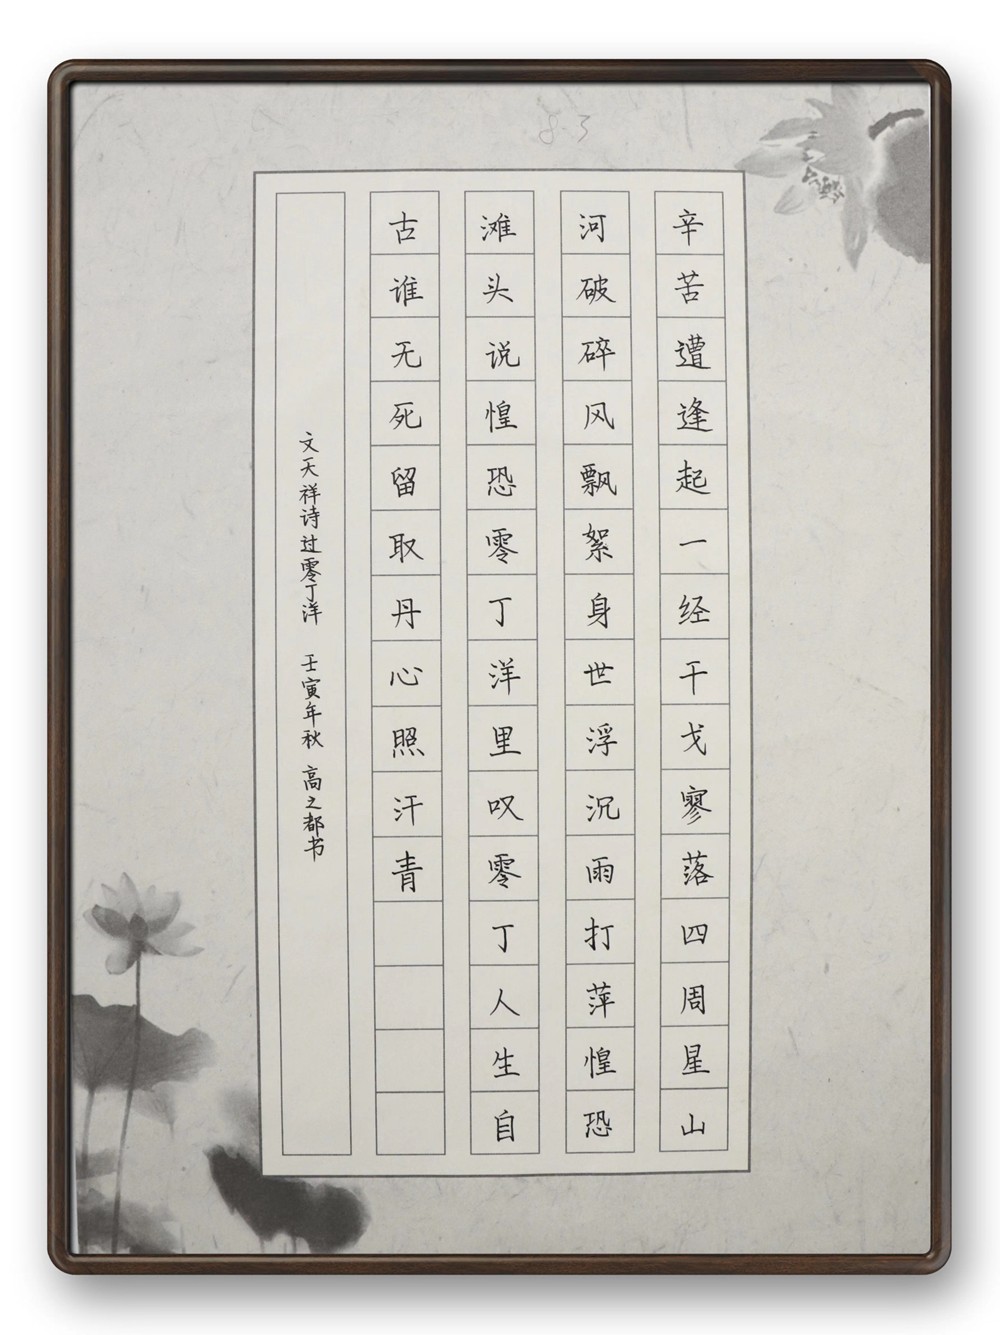 8.3
辛苦遭逢起一经干戈寥落四周星山
河破碎风飘絮身世浮沉雨打萍惶恐
滩头说惶恐零丁洋里叹零丁人生自
古谁无死留取丹心照汗青
文天祥诗过零丁洋 壬寅年秋 高之都书